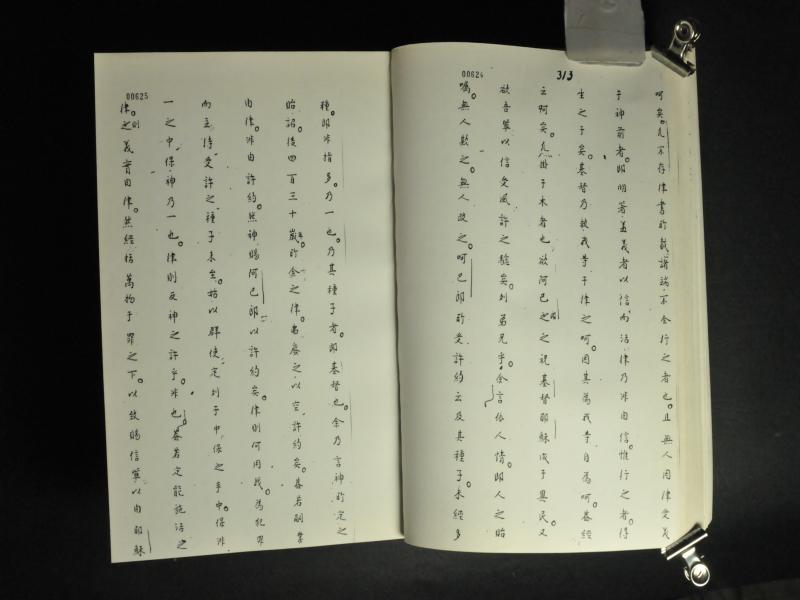 313
00624
呵矣。凡不存律書所載諸端。不全行之者也。且無人因律受義
于神前者。即明著盖義者以信而活。律乃非由信。惟行之者。得
生之于矣。基督乃救我等于律之呵。因其為我等自為呵。盖經
云呵矣。凡掛于木者也。欲阿巳郎之祝基督耶穌成于異民。又
欲吾輩以信受風許之騐矣。列弟兄乎。余言依人情。即人之貽
嘱。無人欺之。無人改之。呵巳郎所受許約云及其種子。未經多
00625
種。即非指多。乃一也。乃其種子者。即基督也。余乃言神所定之
貽詔。後四百三十歲所余之律。弗廢之以空許約矣。盖若嗣業
由律。非由許約。然神賜阿巳郎以許約矣。律則何用哉。為犯罪
而立。待受許之種子未至。括以群使。定列于中保之手中。保非
一之中保。神乃一也。律則反神之許乎。非也。盖若定能施活之
律。則之義實由律。然經括萬物于罪之下。以致賜信輩以由耶穌